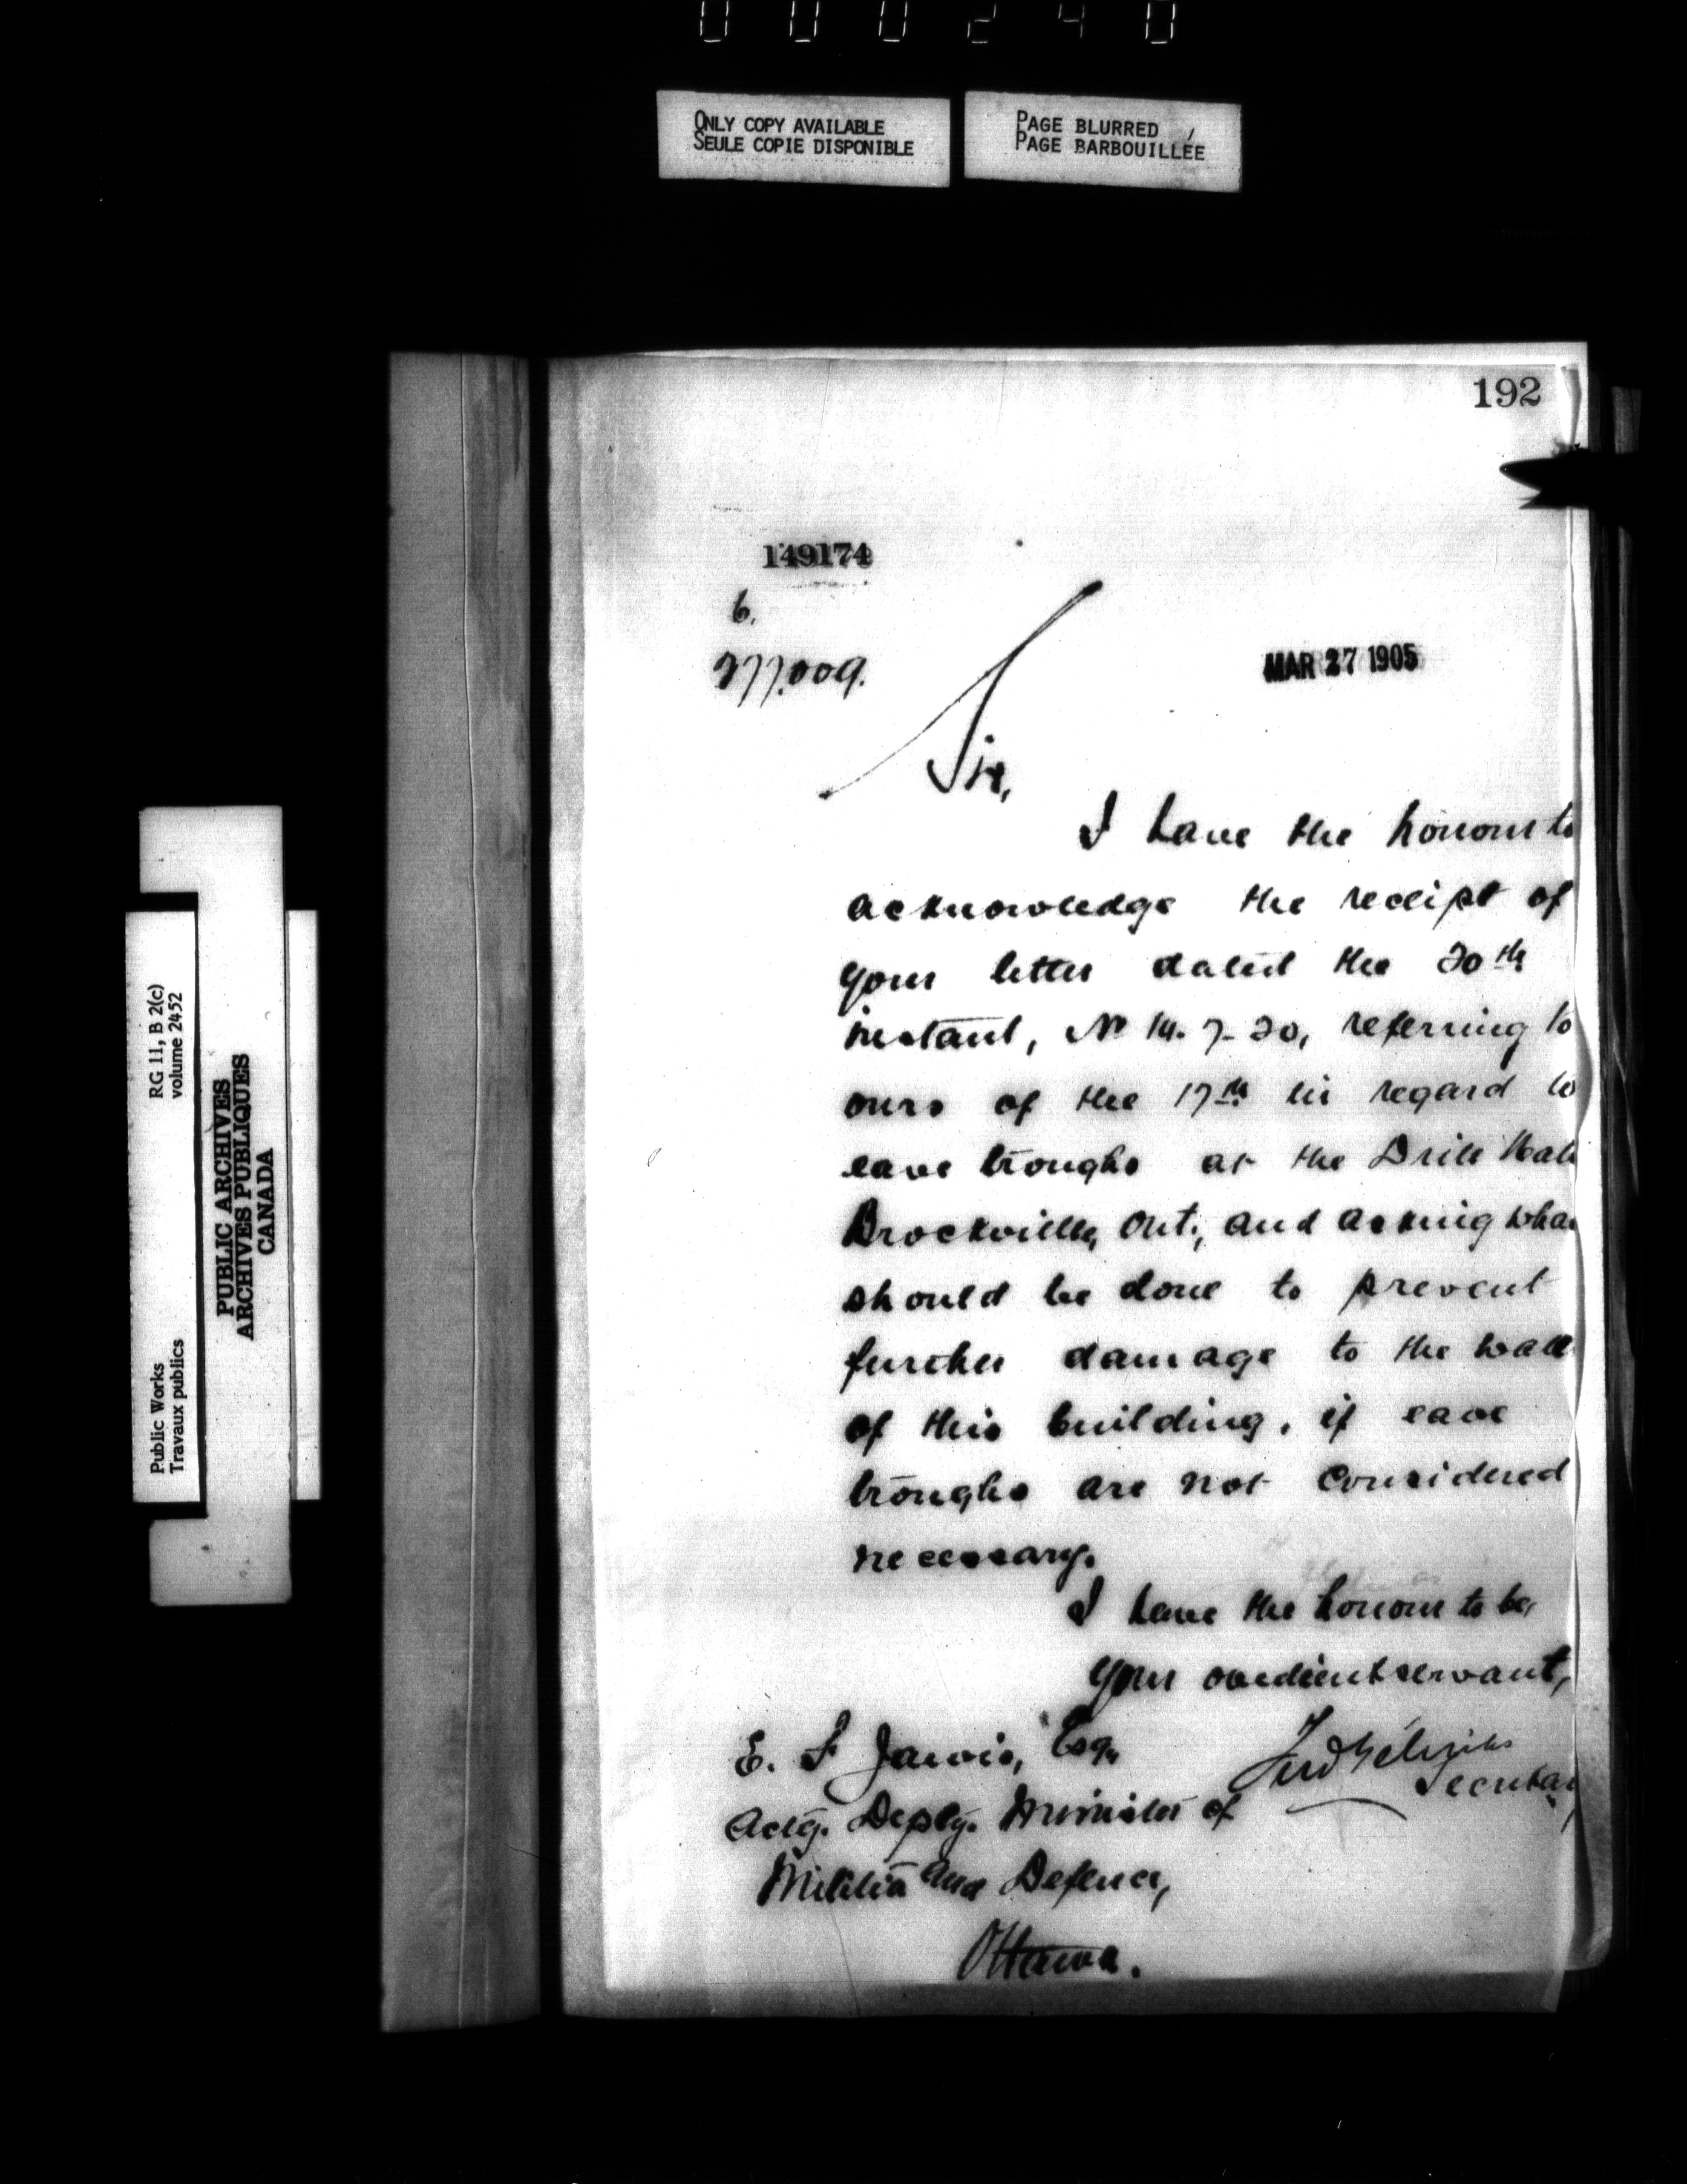 000240
ONLY COPY AVAILABLE
SEULE COPIE DISPONIBLE
PAGE BLURRED
PAGE BARBOUILLÉE
Public Works
Travaux publics
RG 11, B 2(c)
volume 2452
PUBLIC ARCHIVES
ARCHIVES PUBLIQUES
CANADA
192
149174
6.
277.009.
MAR 27 1905
Sir,
I have the honour to
acknowledge the receipt of
your letter dated the 20th
instant, No 14. 7- 20, referring to
ours of the 17th in regard to
eave troughs at the Drill Hall
Brockville, Ont., and asking what
should be done to prevent
further damage to the wall
of this building, if eave
troughs are not considered
necessary.
I have the honour to be,
your obedient servant,
E. F Jarvis, Esq.,
Secretary
Actg. Depty. Minister of
Militia and Defence,
Ottawa.